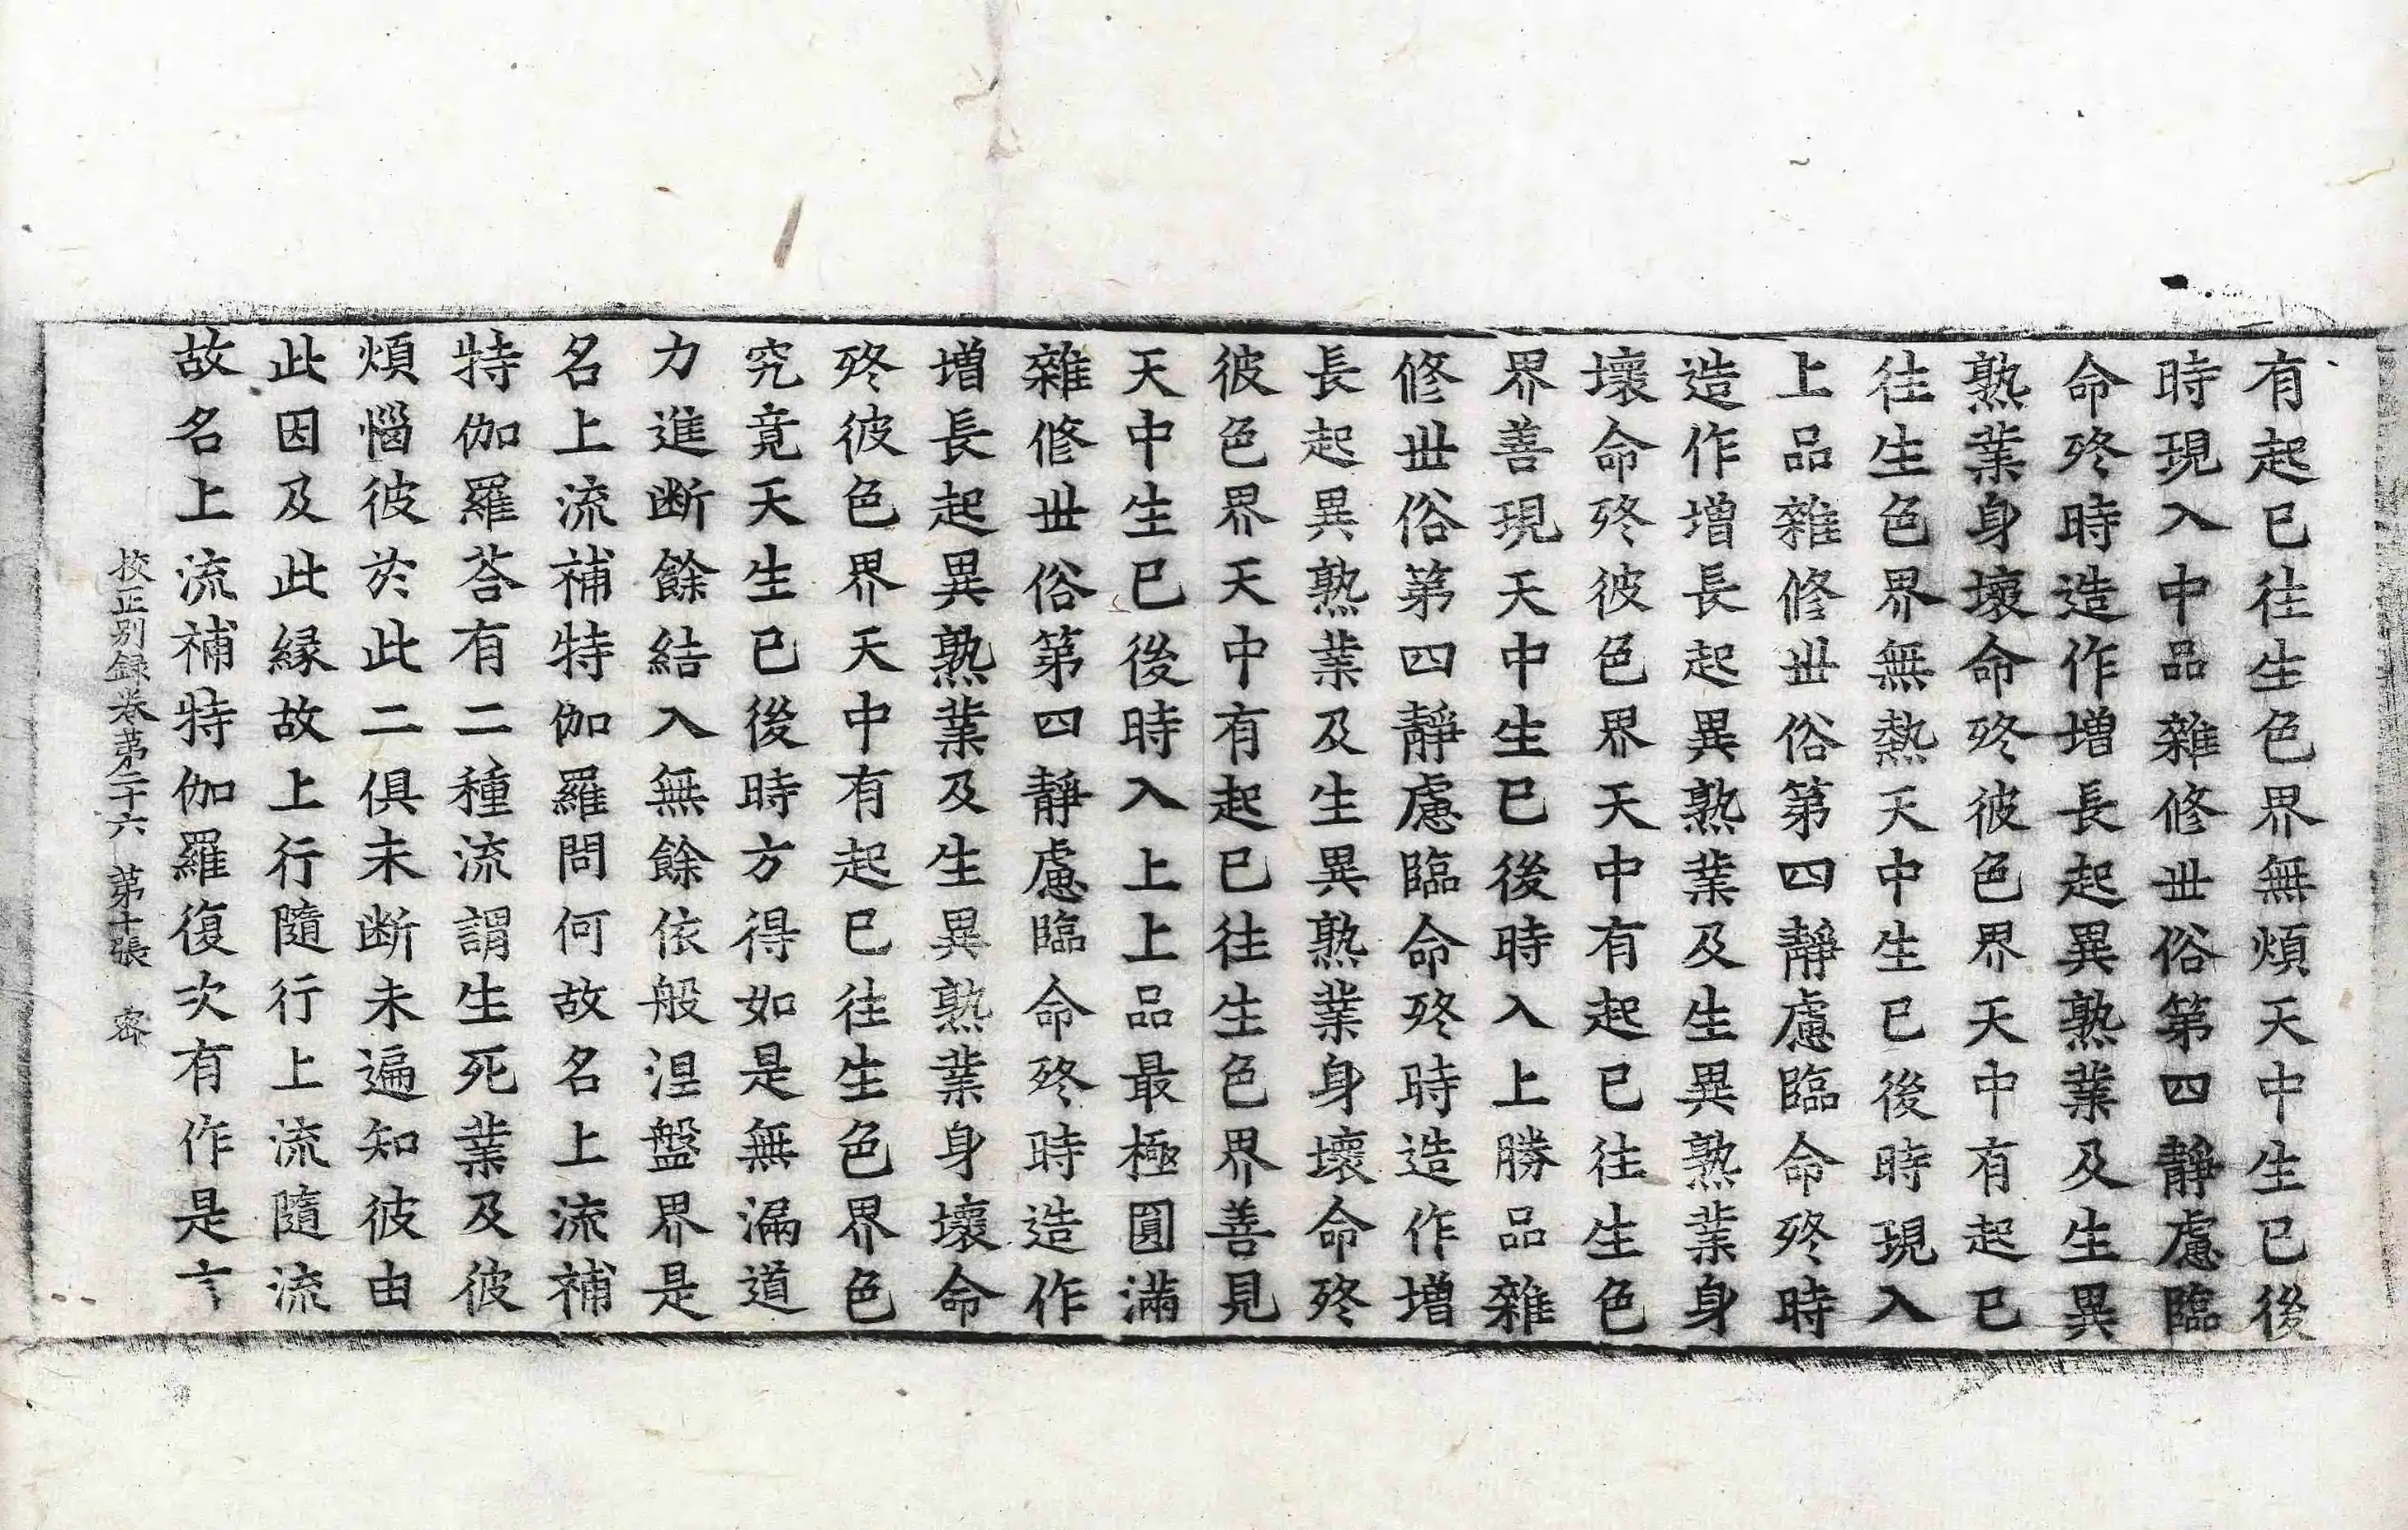 有起已往生色界無煩天中生已後
時現入中品雜修世俗第四靜慮臨
命終時造作增長起異熟業及生異
熟業身壞命終彼色界天中有起已
往生色界無熱天中生已後時現入
上品雜修世俗第四靜慮臨命終時
造作增長起異熟業及生異熟業身
壞命終彼色界天中有起已往生色
界善現天中生已後時入上勝品雜
修世俗第四靜慮臨命終時造作增
長起異熟業及生異熟業身壞命終
彼色界天中有起已往生色界善見
天中生已後時入上上品最極圓滿
雜修世俗第四靜慮臨命終時造作
增長起異熟業及生異熟業身壞命
終彼色界天中有起已往生色界色
究竟天生已後時方得如是無漏道
力進斷餘結入無餘依般涅盤界是
名上流補特伽羅問何故名上流補
特伽羅荅有二種流謂生死業及彼
煩惱彼於此二俱未断未遍知彼由
此因及此縁故上行隨行上流隨流
故名上流補特伽羅復次有作是言
校正別録卷苐二十六 苐十張 密